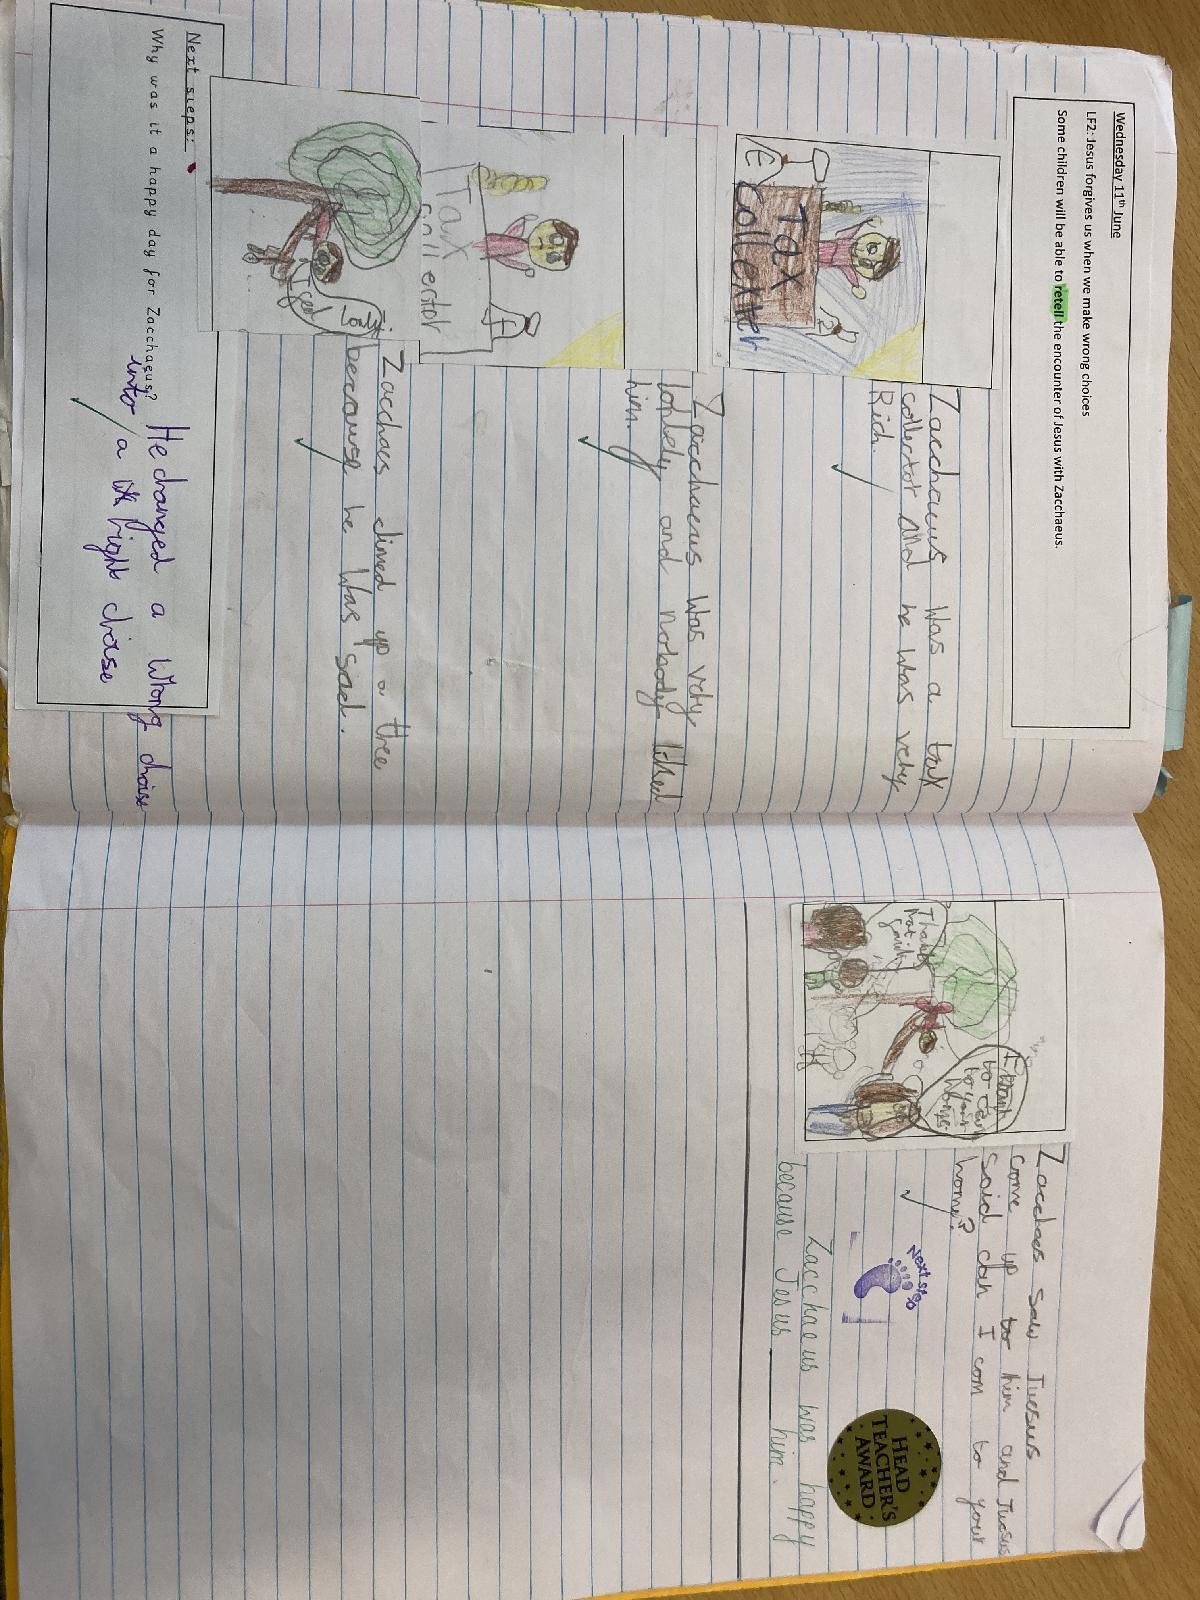 Wednesday 11th June
LF2: Jesus forgives us when we make wrong choices
Some children will be able to retell the encounter of Jesus with Zacchaeus.
Tax
Collexter
£
Zacchaeus was a tax
collertor and he was very
Rich.
Tax
collertor
£
Zacchaeus was very
lonley and nobody liked
him.
Zacchaus climed up a tree
because he was sad.
Next steps:
Why was it a happy day for Zacchaeus?
He changed a wrong choise
into a right choise
I want
to
to your
home
Zacchaes saw Juesus
come up to him and Juesus
said can I com to your
home?
Next step
HEAD
TEACHER'S
AWARD
Zacchaeus was happy
because Jesus ____ him.